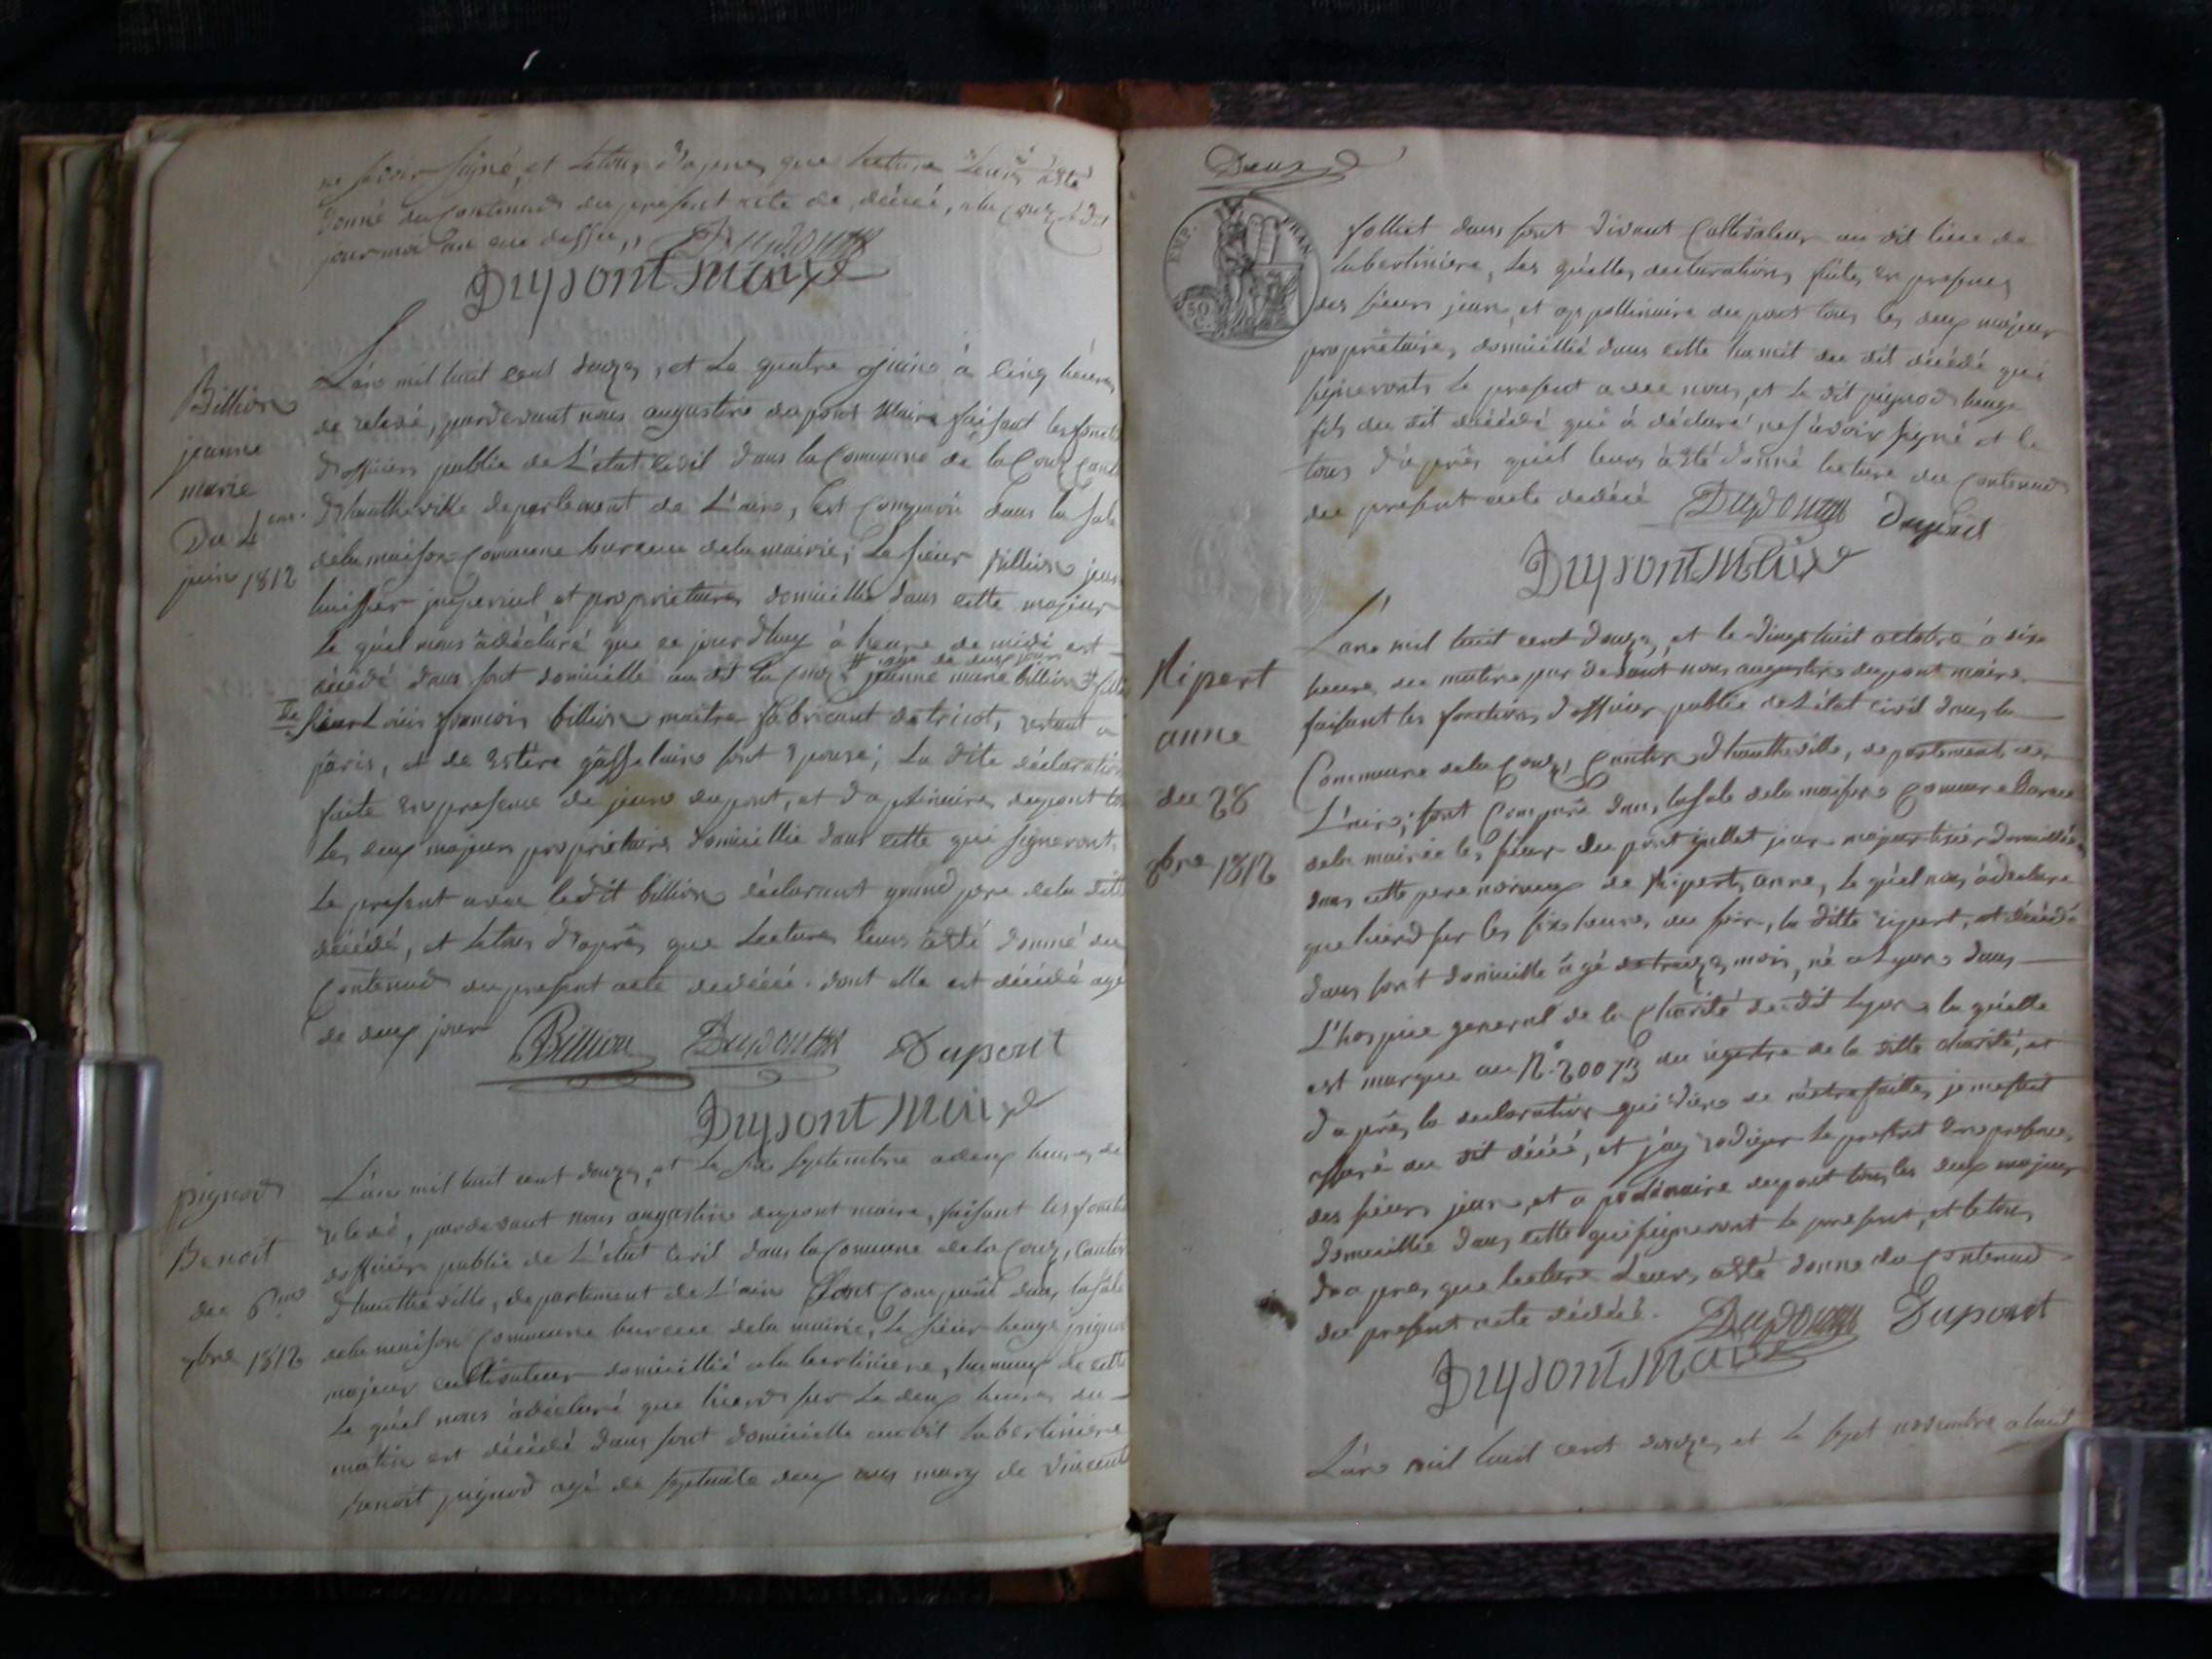 ne savoir signé, et letous d'apres que lecture leurs àété
donné du contenud du present acte de décéé, ala Couz les
jour moi an que dessu,, Dupont
Dupont Maire
Billion
jeanne
marie
Du 4eme
juin 1812
L'an mil huit cent douze, et le quatre juin à cinq heures
de relevé, pardevant nous augustin dupont Maire faisant les fonct
d'officier public de L'etat Civil dans la Commune de la Couz Cant
d'hautheville departement de L'ain, Est Comparu dans la sale
dela maison Commune bureau dela mairie; Le sieur billion jean
huissier imperial et proprietaire domicillié dans cette majeur
le quel nous àdéclaré que ce jourd'huy à heure de midi est
décédé dans sont domicille au dit la Couz # jeanne marie billion # fille
# age de deux jours
de sieur Louis françois billion maitre fabricant de tricot, restant a
pâris, et de Estère gâsselain sont Epouse; La dite déclaration
faite En presence de jean dupont, et d'apolinaire dupont tous
les deux majeurs proprietaire domicillié dans cette qui signeront
le present avec ledit billion déclarant grand pere dela ditte
décédé, et letous d'après que lecture leurs àété donné du
Contenud du present acte dedéceé. dont elle est décédé agé
de deux jour Billion Dupont Dupont
Dupont Maire
pignod
Benoit
du 6me
7bre 1812
L'an mil huit cent douze, et le six Septembre adeux heures de
relevé, pardevant nous augustin dupont maire, faisant les fonctio
d'officier public de L'etat Civil dans la Commune dela Couz, Canton
d'hautheville, departement de L'ain Sont Comparu dans la sale
dela maison Commune bureau dela mairie, le sieur huge pignod
majeur cultivateur domicillié ala bertiniere, hameau de cette
le quel nous àdéclaré que hierd sur le deux heures du
matin est décédé dans sont domicille audit labertiniere
benoit pignod agé de septante deux ans mary de vincent
Deux
EMP. FRAN.
50 C.
folliet dans sont vivant Cultivateur au dit lieu de
labertiniere, les quelles declaration faite En presence
des sieurs jean, et appollinaire du pont tous les deux majeur
propriétaire, domicillié dans cette hamit du dit décédé qui
signeronts le present avec nous, et le dit pignod huge
fils du dit décédé qui à déclaré ne sàvoir signé et le
tous d'après quil leurs àété donné lecture du Contenud
du present acte dedécé Dupont Dupont
Dupont Maire
Ripert
anne
du 28
8bre 1812
L'an mil huit cent douze, et le vingt huit octobre à six
heure du matin par devant nous augustin dupont maire
faisant les fonctions d'officier public de L'état civil dans la
Commune dela Couz, Canton d'hautheville, departement de
L'ain; sont Comparû dans la sale dela maison Commune bureau
dela mairie les sieur du pont gullet jean majeur tisier domicillié
dans cette pere noricux de Ripert, anne, le quel nous àdeclare
que hierd sur les six heures du soir, la ditte ripert, et décédé
dans sont domicille âgé detreize mois, né a Lyon dans
L'hospice general de la Charité dedit Lyon la quelle
est marque au N° 20073 du registre de la ditte charité, et
d'après la declaration qui vien de m'etre faitte, je me suit
assuré du dit décéé, et j'ay rediger le present En presence
des sieurs jean, et a polinaire dupont tous les deux majeur
domicillié dans cette qui signeront le present, et letous
d'a pres que lecture Leurs àété donne du Contenud
du present acte dedécé. Dupont Dupont
Dupont Maire
L'an mil huit cent douze, et le sept novembre a huit